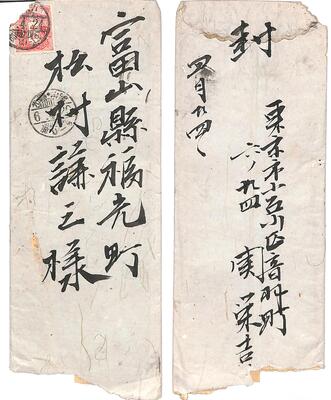 富山縣福光町
松村謙三様
封
四月九日
東京市小石川区音羽町
六ノ九四